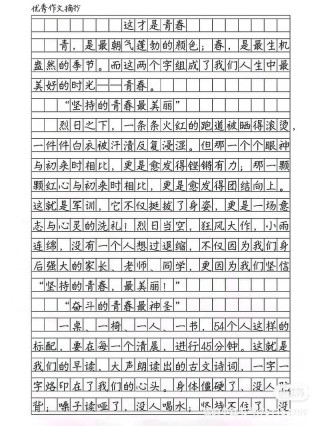 优秀作文摘抄
这才是青春
青，是最朝气蓬勃的颜色；春，是最生机
盎然的季节。而这两个字组成了我们人生中最
美好的时光——青春。
“坚持的青春最美丽”
烈日之下，一条条火红的跑道被晒得滚烫，
一件件白衣被汗渍反复浸湿。但那一个个眼神
与初来时相比，更是愈发得铿锵有力；那一颗
颗红心与初来时相比，更是愈发得团结向上。
这就是军训，它不仅挺拔了身姿，更是一场意
志与心灵的洗礼！烈日当空，狂风大作，小雨
连绵，没有一个人想过退缩，不仅因为我们身
后强大的家长、老师、同学，更因为我们坚信
“坚持的青春，最美丽！”
“奋斗的青春最神圣”
一桌、一椅、一人、一书，54个人这样的
标配，要在每一个清晨，进行45分钟。这就是
我们的早读，大声朗读出的古文诗词，一字一
字烙印在了我们的心头。身体僵硬了，没人
背；嗓子读哑了，没人喝水；坚持不住了，没